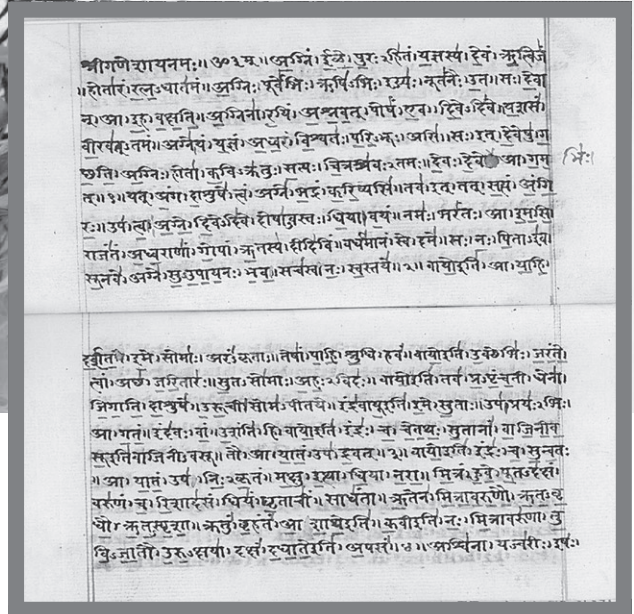 श्रीगणेशायनमः॥ ॐ३म्॥ अग्निं। ईळे। पुरः२हितं। यज्ञस्य। देवं। ऋत्विजं
॥होतारं। रत्न२धातमं॥ अग्निः। पूर्वेभिः। ऋषि२भिः। ईड्यः। नूतनैः। उत॥ सः। देवा
न्। आ। इह। वक्षति॥ अग्निना। रयिं। अश्नवत्। पोषं। एव। दिवे२दिवे॥ यशसं
वीरवत्२तमं॥ अग्ने। यं। यज्ञं। अध्वरं। विश्वतः। परि२भूः। असि॥ सः। इत्। देवेषु। ग
च्छति॥ अग्निः। होता। कवि२क्रतुः। सत्यः। चित्रश्रवः२तमः॥ देवः। देवे आ। गम भिः।
त्॥१॥ यत्। अंग। दाशुषे। त्वं। अग्ने। भद्रं। करिष्यसि॥ तव। इत्। तत्। सत्यं। अंगि
रः॥ उप। त्वा। अग्ने। दिवे२दिवे। दोषा२वस्तः। धिया। वयं॥ नमः। भरंतः। आ। इमसि॥
राजंतं। अध्वराणां। गोपां। ऋतस्य। दीदिविं॥ वर्धमानं। स्वे। दमे॥ सः। नः। पिता२इव।
सूनवे। अग्ने। सु२उपायनः। भव॥ सचस्व। नः। स्वस्तये॥२॥ वायोइति। आ। याहि।
दर्शत। इमे। सोमाः। अरं२कृताः॥ तेषां। पाहि। श्रुधि। हवं॥ वायोइति। उक्थेभिः। जरंते।
त्वां। अच्छ। जरितारः॥ सुत२सोमाः। अहः२विदः॥ वायोइति। तव। प्र२पृंचती। धेना।
जिगाति। दाशुषे॥ उरूची। सोम२पीतये॥ इंद्रवायूइति। इमे। सुताः॥ उप। प्रयः२भिः।
आ। गतं॥ इंदवः। वां। उशंति। हि॥ वायोइति। इंद्रः। च। चेतथः। सुतानां। वाजिनीव
सूइतिवाजिनी२वसू॥ तौ। आ। यातं। उप। द्रवत्॥३॥ वायोइति। इंद्रः। च। सुन्वतः
॥आ। यातं। उप। निः२कृतं॥ मक्षु। इत्था। धिया। नरा॥ मित्रं। हुवे। पूत२दक्षं।
वरुणं। च। रिशादसं॥ धियं। घृताचीं। साधंता॥ ऋतेन। मित्रावरुणौ। ऋत२वृ
धौ। ऋत२स्पृशा॥ क्रतुं। बृहंतं। आशाथेइति॥ कवीइति। नः। मित्रावरुणा। तु
वि२जातौ। उरु२क्षया॥ दक्षं। दधातेइति। अपसं॥४॥ अश्विना। यज्वरीः। इषः।